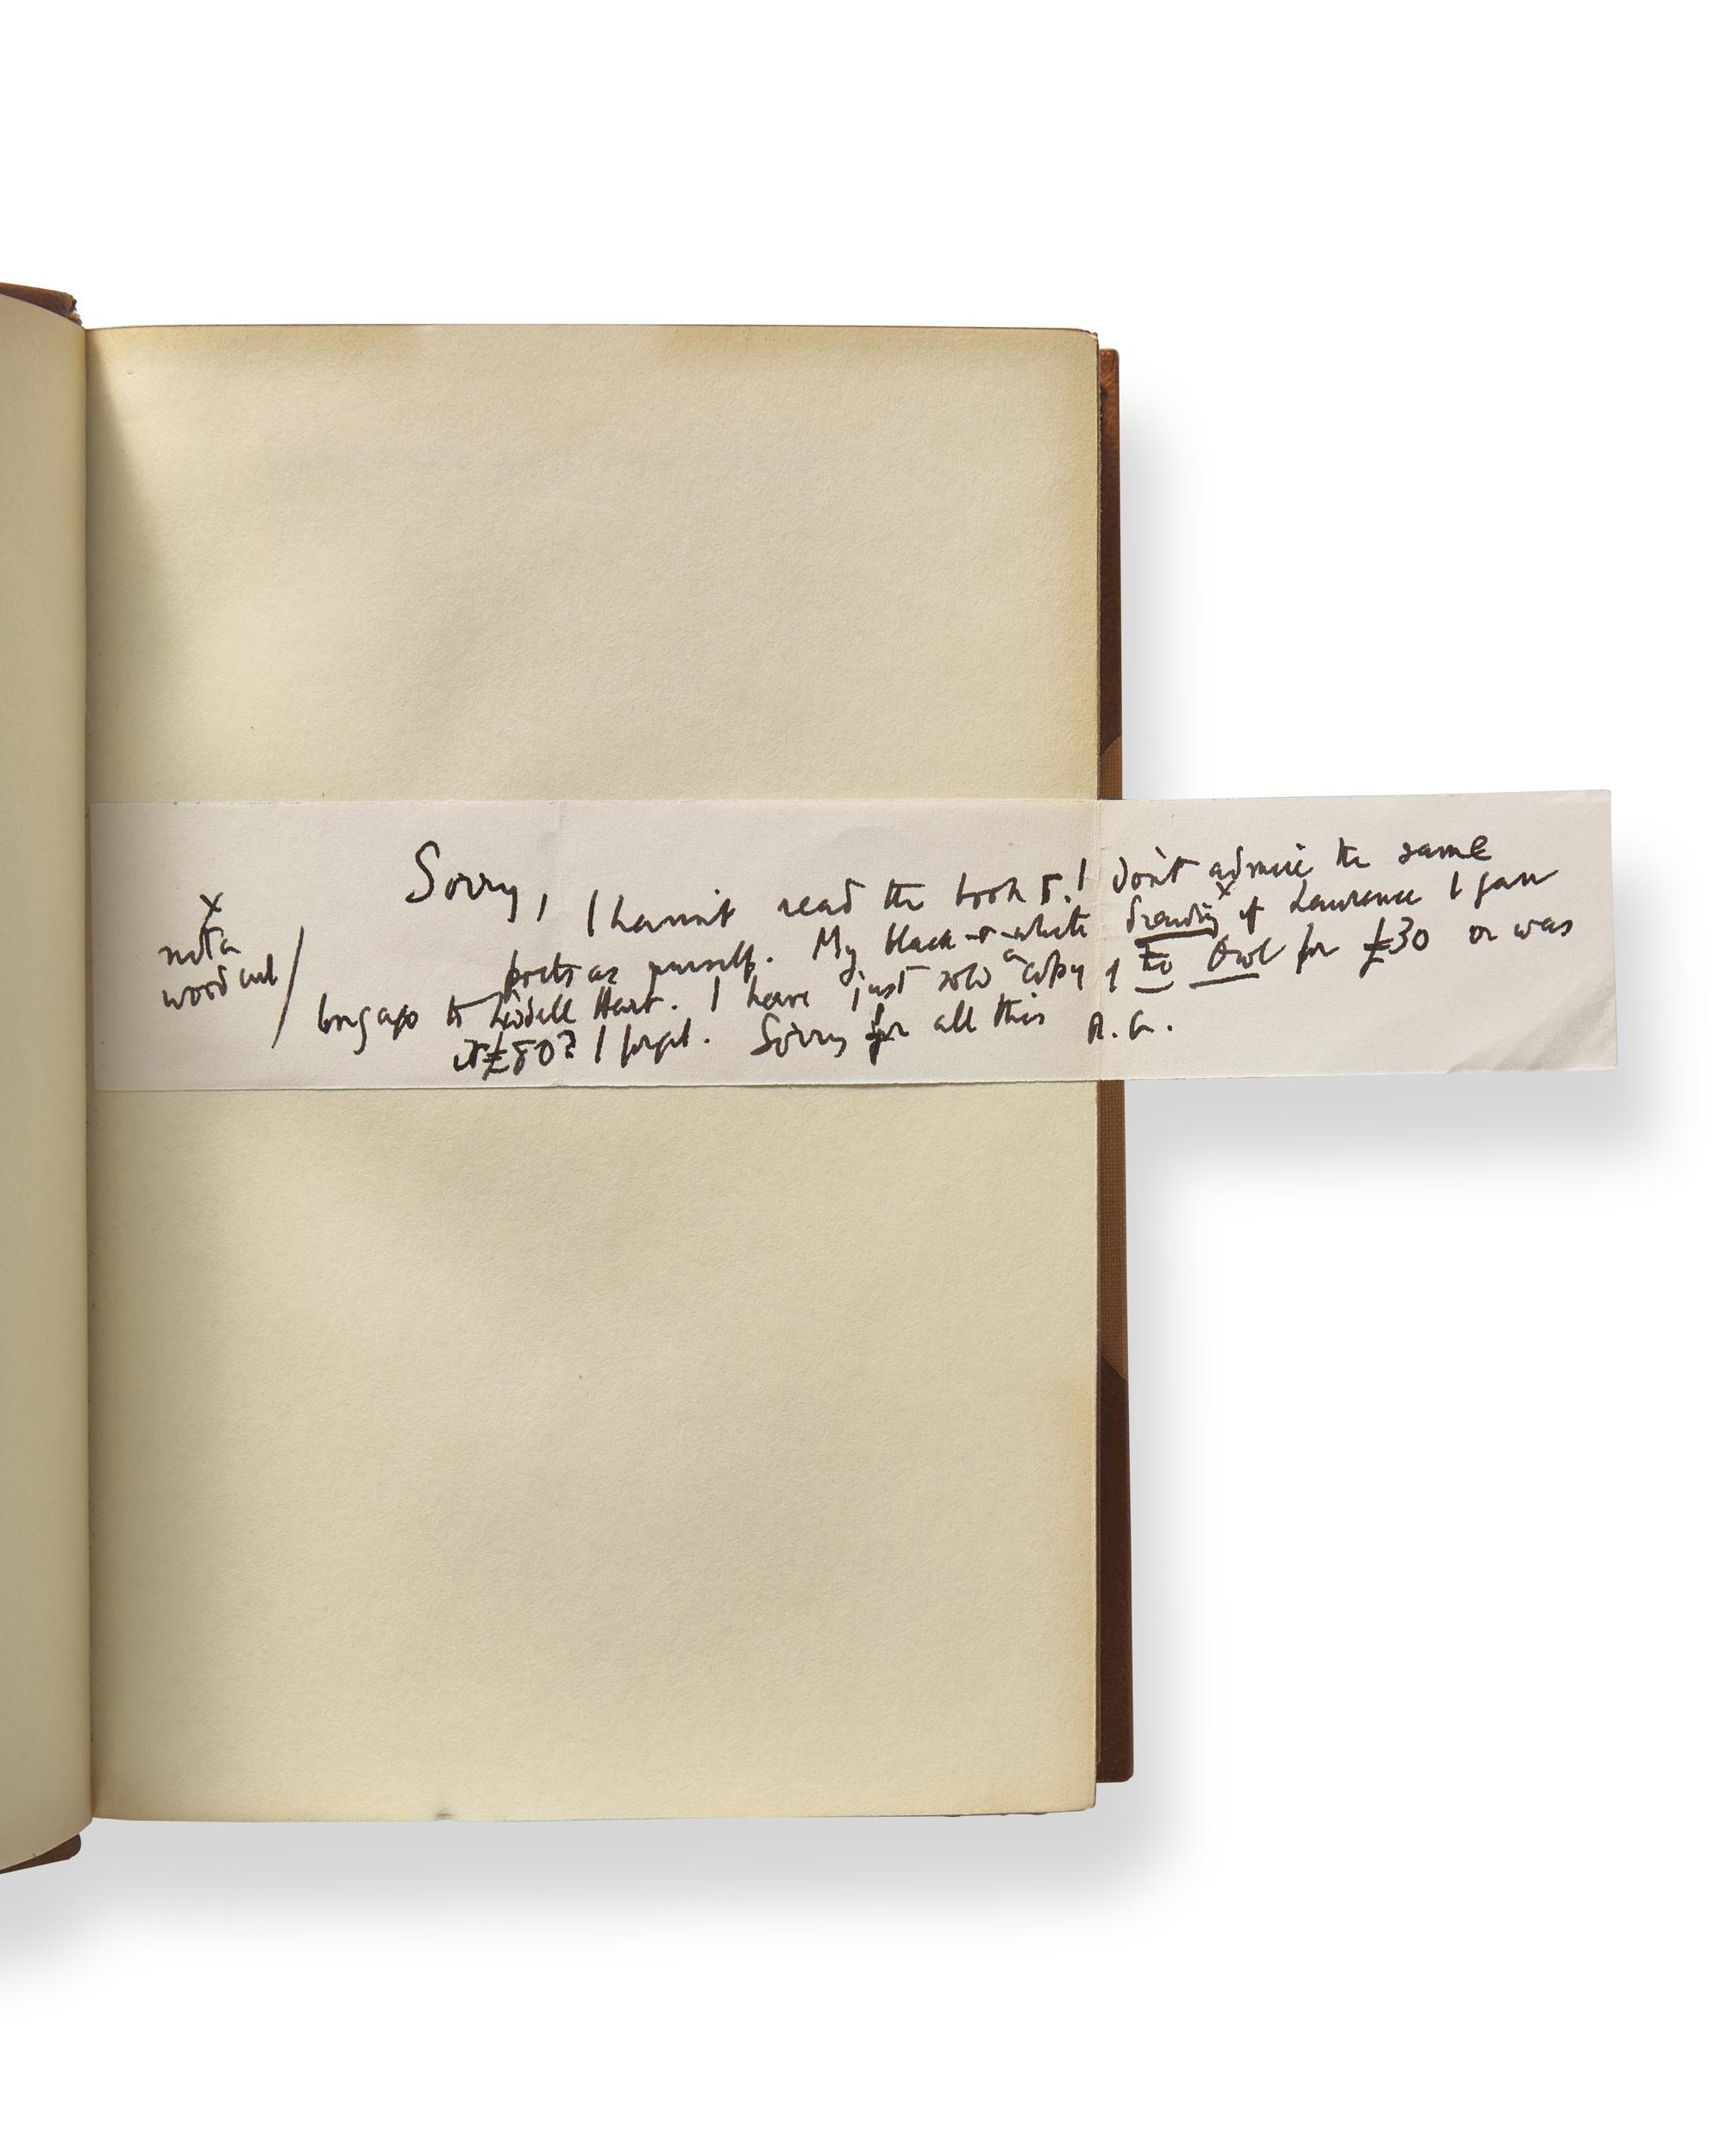 Sorry, I haven't read the book &. I don't admire the same
poets as yourself. My black-&-white drawing x of Lawrence I gave
long ago to Liddell Hart. I have just sold a copy of To Owl for £30 or was
it £80? I forget. Sorry for all this R.G.
x
not a
woodcut /